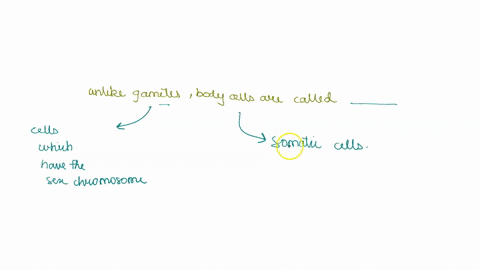 unlike gamites, body cells are called ______
cells
which
have the
sex chromosome
Somatic cells.